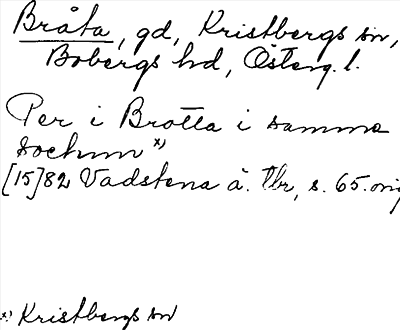 Bråta, gd, Kristbergs sn,
Bobergs hd, Österg. l.
Per i Brotta i samma
sochnn x)
[15]82 Vadstena å. Tbr, s. 65. orig
x) Kristbergs sn